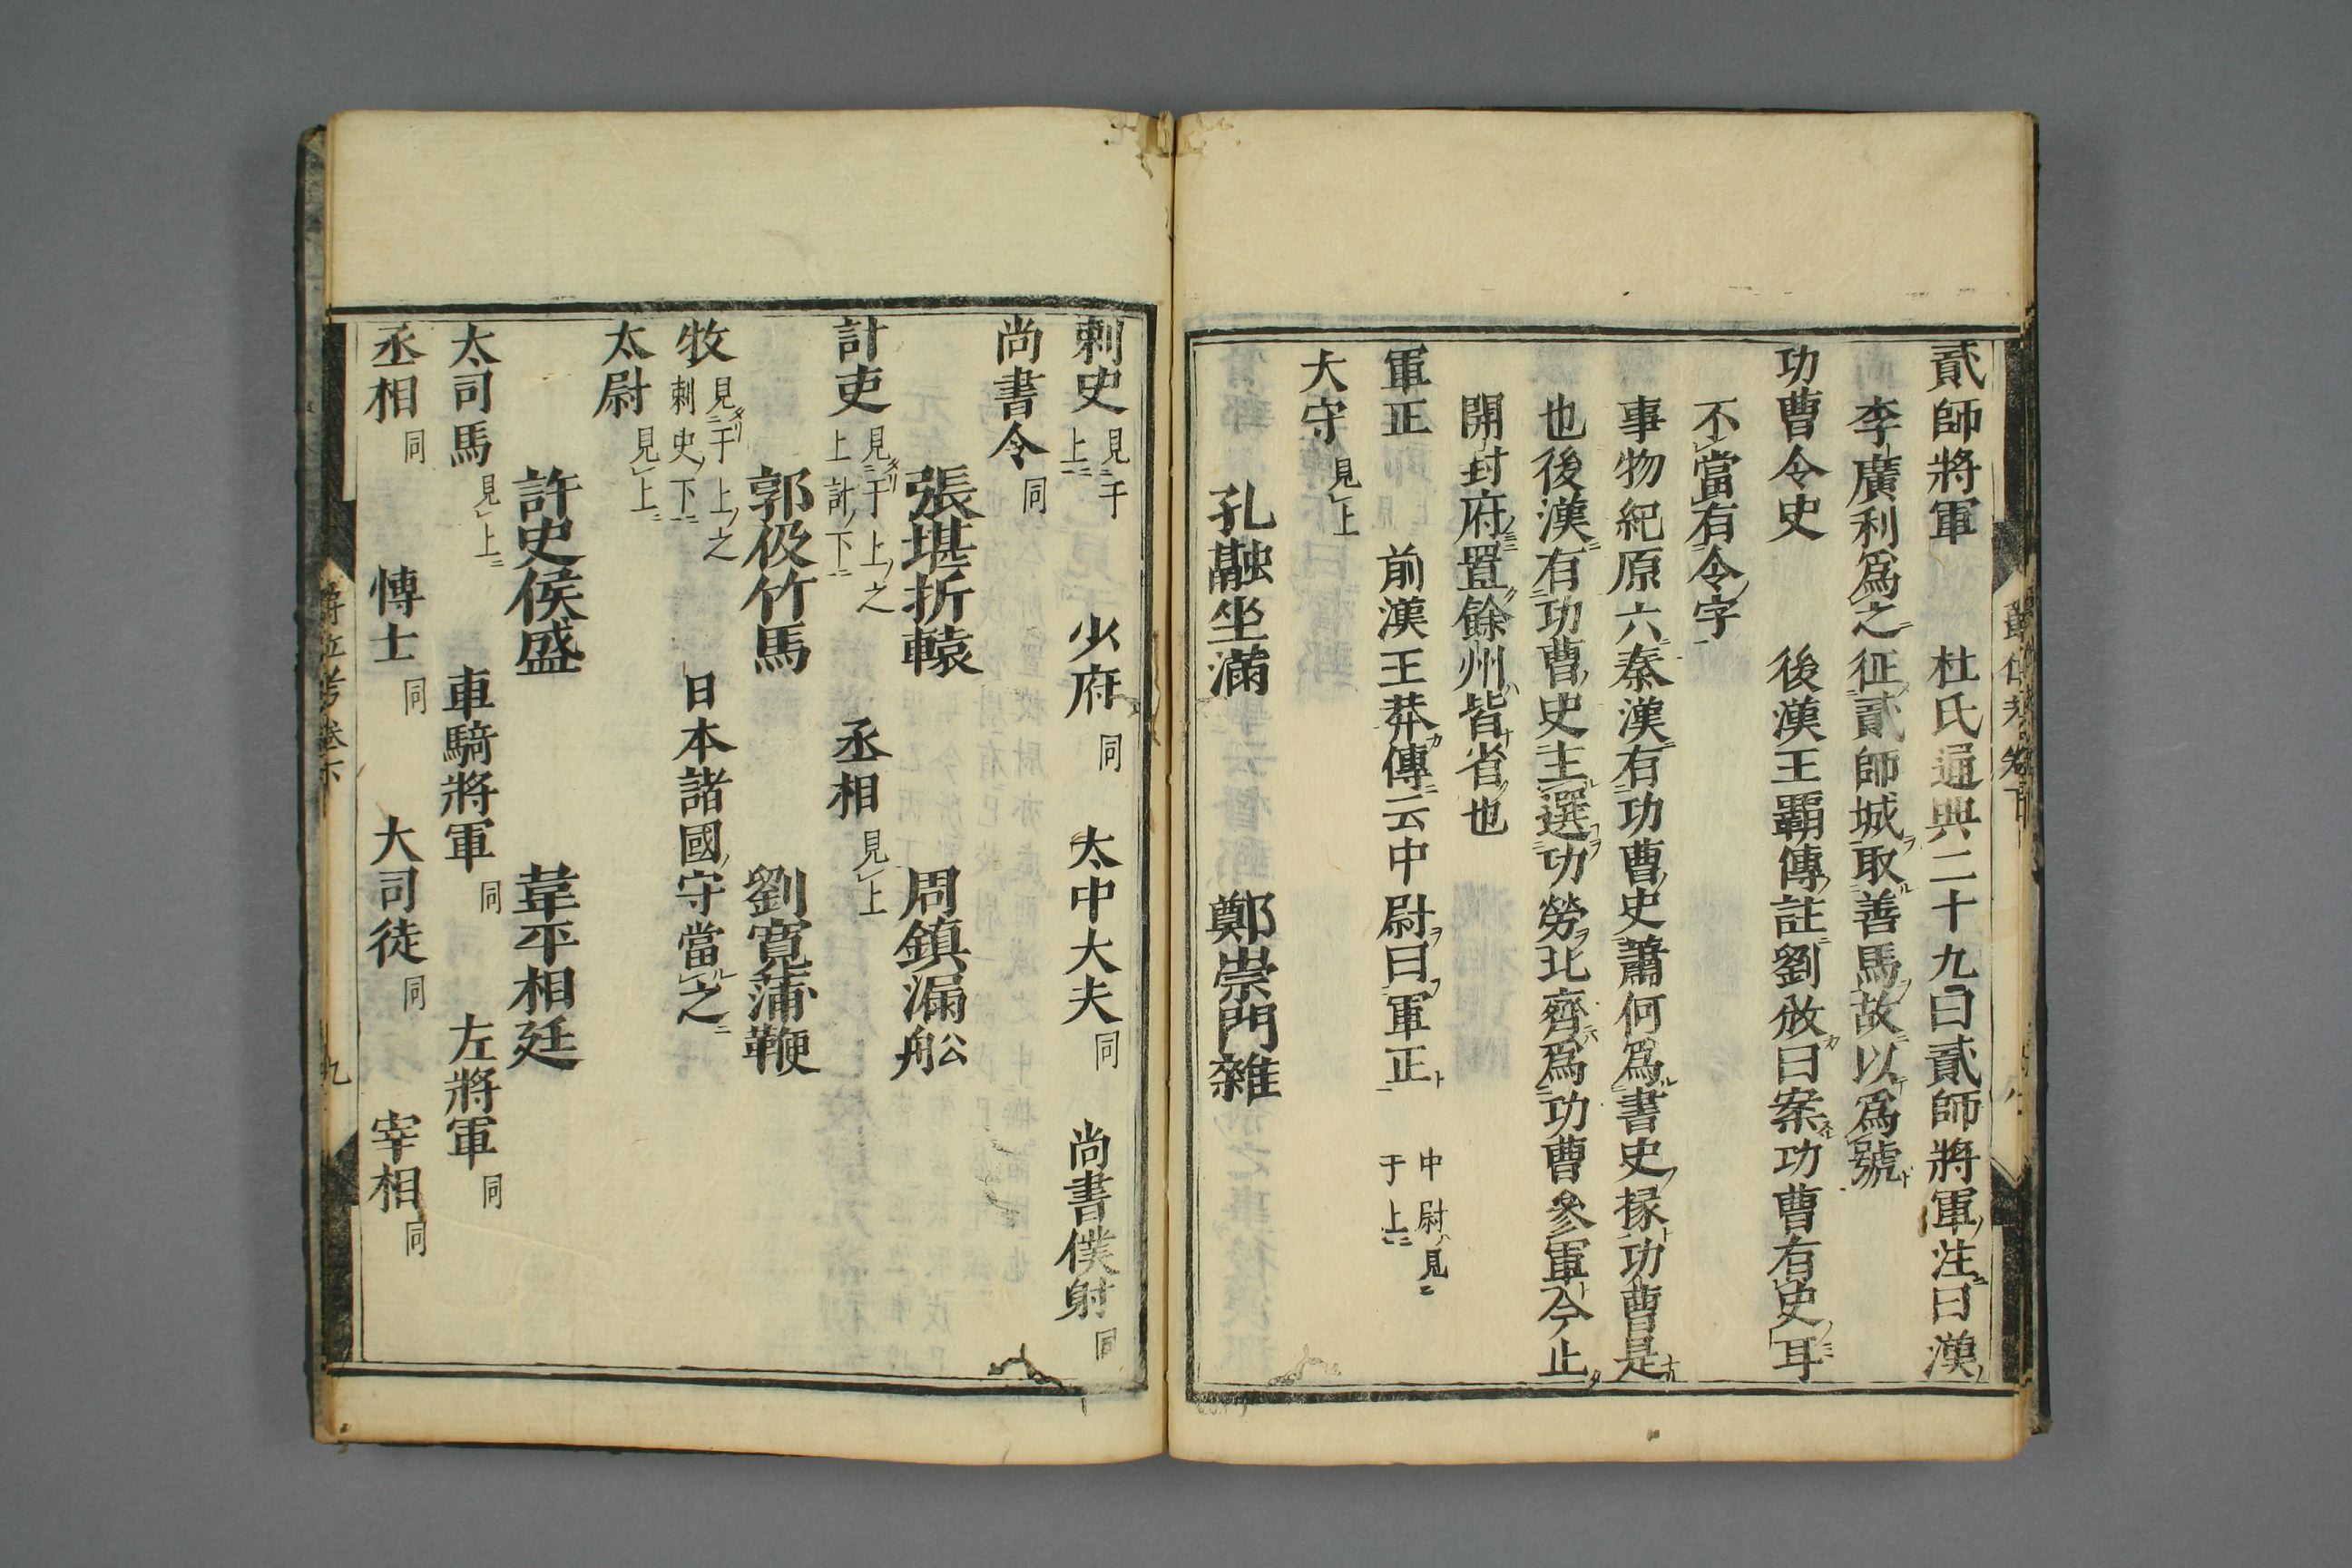 貳師將軍　杜氏通典二十九曰貳師將軍注曰漢
李廣利爲之征貳師城取善馬故以爲號
功曹令史　後漢王覇傳註劉攽曰案功曹有史耳
不當有令字
事物紀原六秦漢有功曹史蕭何爲書史掾功曹是
也後漢有功曹史主選功勞北齊爲功曹參軍今止
開封府置餘州皆省也
軍正　前漢王莽傳云中尉曰軍正　中尉見于上
大守見上
孔融坐滿　鄭崇門雜
刺史見于上　少府同　太中大夫同　尚書僕射同
尚書令同
張堪折轅　周鎮漏舩
計吏見于上之上計下　丞相見上
郭伋竹馬　劉寬蒲鞭
牧見于上之刺史下　日本諸國守當之
太尉見上
許史侯盛　韋平相延
太司馬見上　車騎將軍同　左將軍同
丞相同　博士同　大司徒同　宰相同